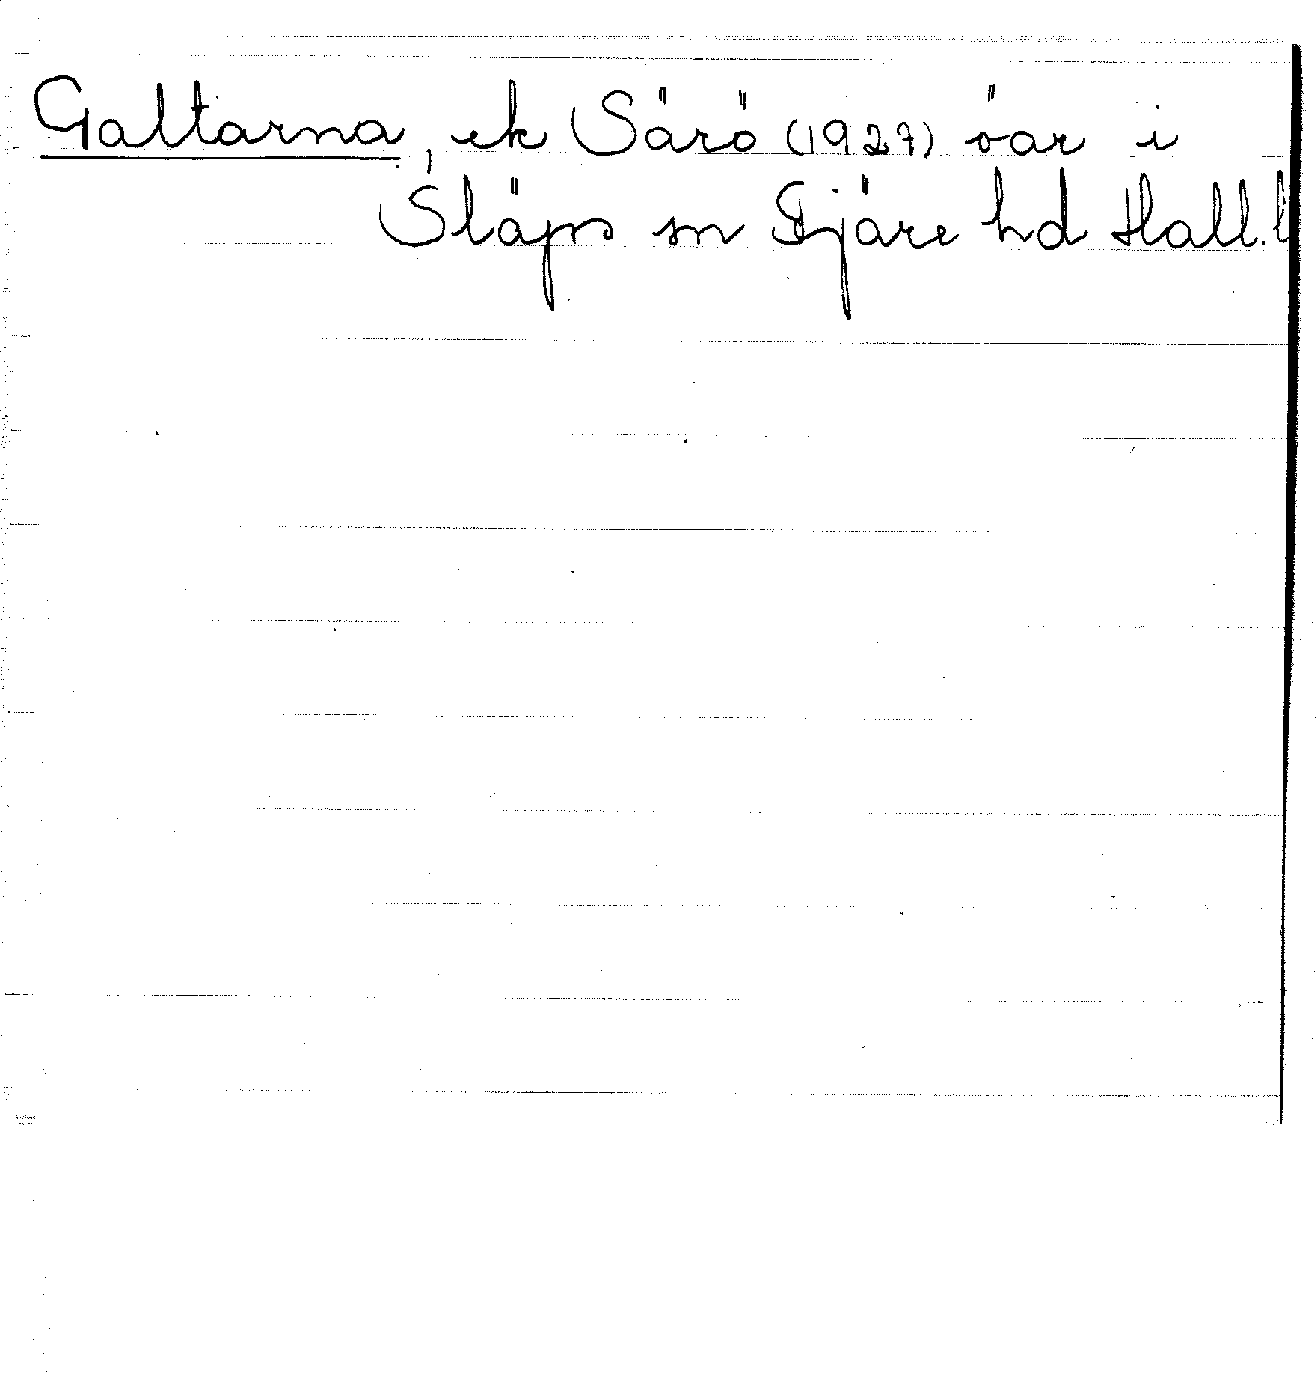 Galtarna, ek Särö (1927) öar i
Släps sn Fjäre hd Hall. l